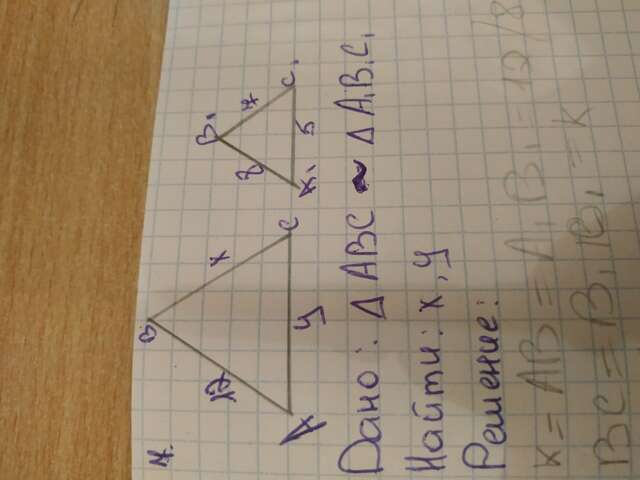 7.
B
12
x
A
y
C
B₁
8
7
A₁
5
C₁
Дано: Δ ABC ~ Δ A₁B₁C₁
Найти: x, y
Решение:
K = AB = A₁B₁ = 12/8
BC = B₁ B₁ = K